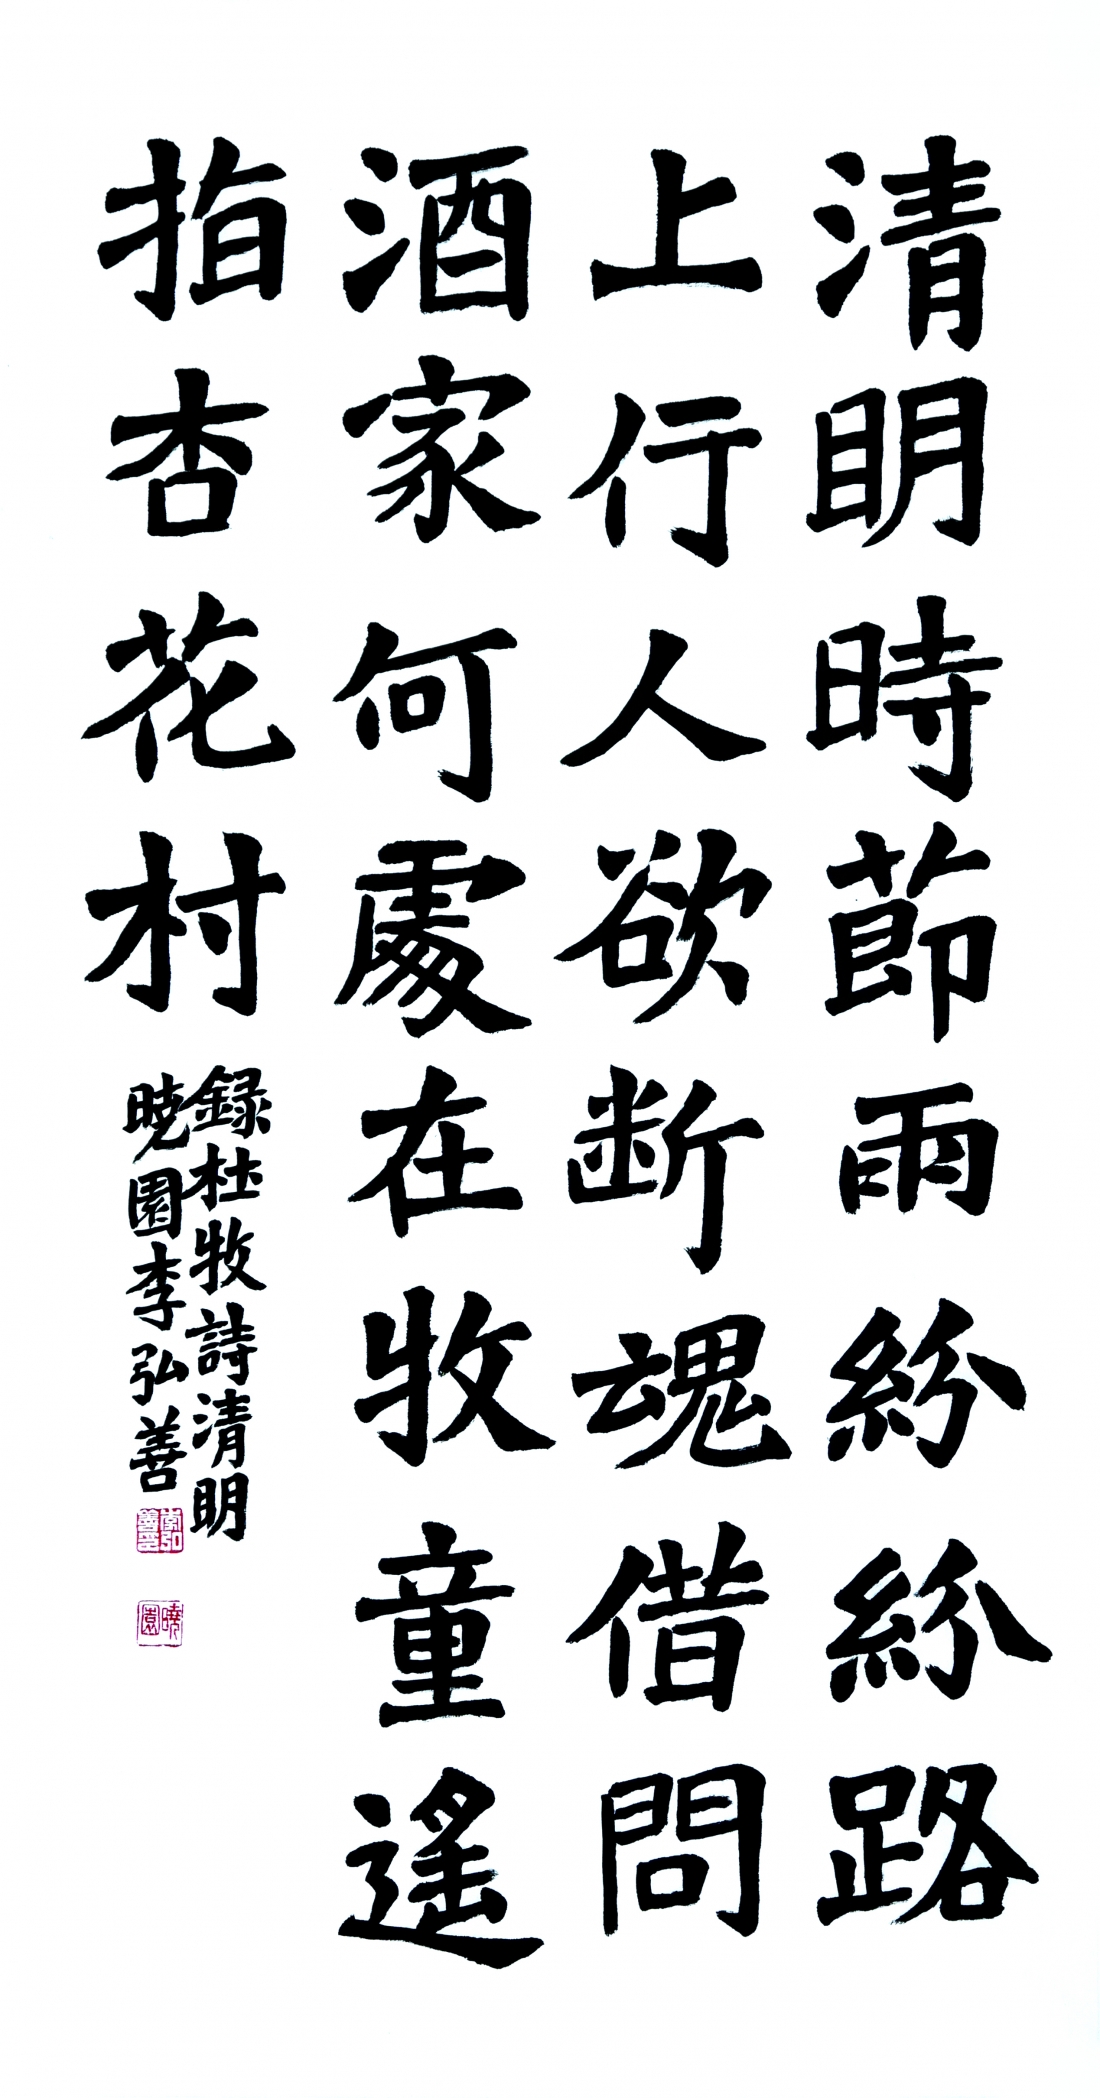 清明時節雨紛紛路
上行人欲断魂借問
酒家何處在牧童遙
指杏花村
録杜牧詩清明
暁園李弘善
李弘善印
曉園